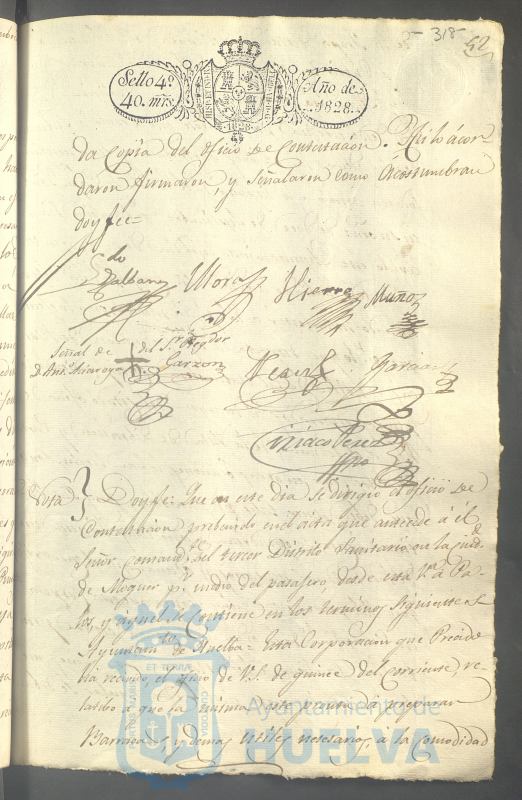 318
52
Sello 4º
40. mrs.
Año de
1828.
da Copia del oficio de Contestacion. Asi lo acor-
daron firmaron, y señalaron como acostumbran
doy fee=
Mora
Hierro
Muñoz
Señal de
del Sr. Regdor
D. Anto.
Garzon
Garcia
Ciriaco Perez
Nota
Doy fe: Que en este dia se dirigió el oficio de
Contestacion prebenido en el acta que antecede á él
Señor Comandte. del tercer Distrito Sanitario en la
de Moguer pr. medio del pasagero desde esta Va. á Pa-
los, y aquel se contiene en los terminos siguientes
Ayuntamto. de Huelba = Esta Corporacion que Presido
ha recivido el oficio de V.S. de quince del corriente, re-
latibo á que la misma este pronta á preparar
Barracas, y demas utiles necesarios, á la comodidad
Ayuntamiento de
HUELVA